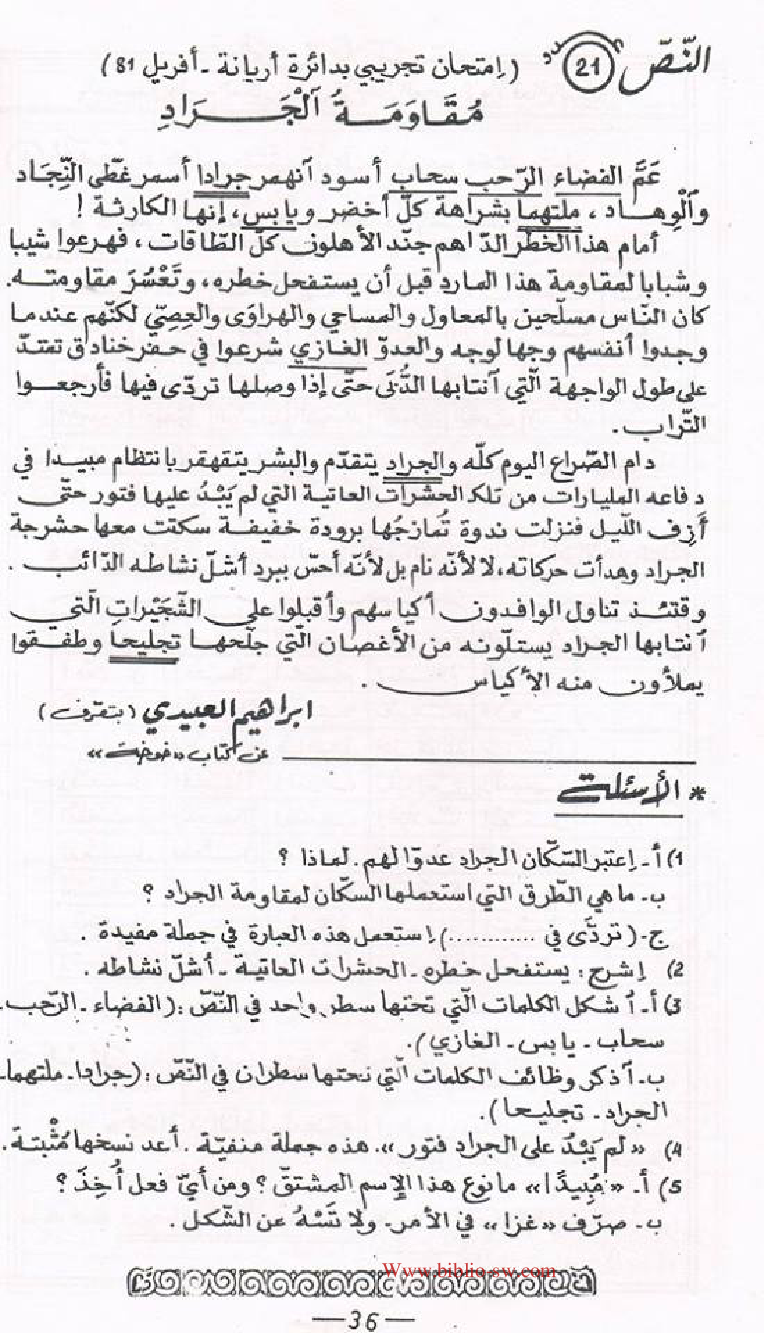 النّصّ عدد 21 (إمتحان تجريبي بدائرة أريانة - أفريل 81)
مُقَاوَمَةُ اَلْجَرَادِ
عَمَّ الفضاء الرّحب سحاب أسود اَنهمر جرادا أسمر غطّى النِّجَاد
واَلْوِهاد، ملتهما بشراهة كلّ أخضر ويابس، إنها الكارثة !
أمام هذا الخطر الدّاهم جنّد الأهلون كلّ الطّاقات، فهرعوا شيبا
وشبابا لمقاومة هذا المارد قبل أن يستفحل خطره، وتَعْسُرَ مقاومته.
كان النّاس مسلّحين بالمعاول والمساحي والهراوى والعِصِيّ لكنّهم عندما
وجدوا أنفسهم وجها لوجه والعدوّ الغازي شرعوا في حفر خنادق تمتدّ
على طول الواجهة الّتي اَنتابها الدَّبَى حتّى إذا وصلها تردّى فيها فأرجعوا
التّراب.
دام الصّراع اليوم كلّه والجراد يتقدّم والبشر يتقهقر بانتظام مبيدا في
دفاعه المليارات من تلك الحشرات العاتية التي لم يَبْدُ عليها فتور حتّى
أَزِف اللّيل فنزلت ندوة تُمازجُها برودة خفيفة سكتت معها حشرجة
الجراد وهدأت حركاته، لا لأنّه نام بل لأنّه أحسّ ببرد أشلّ نشاطه الدّائب.
وقتئذ تناول الوافدون أكياسهم وأقبلوا على الشّجَيْراتِ الّتي
اَنتابها الجراد يستلّونه من الأغصان الّتي جلّحها تجليحا وطفقوا
يملأون منه الأكياس.
ابراهيم العبيدي (بتصرف)
عن كتاب «
* الأسئلة
1) أ- إعتبر السّكّان الجراد عدوّا لهم. لماذا ؟
ب- ما هي الطّرق التي استعملها السكّان لمقاومة الجراد ؟
ج- (تردّى في ............) إستعمل هذه العبارة في جملة مفيدة.
2) إشرح : يستفحل خطره - الحشرات العاتية - أشلّ نشاطه.
3) أ- اُشكل الكلمات الّتي تحتها سطر واحد في النّصّ : (الفضاء - الرّحب -
سحاب - يابس - الغازي).
ب- اَذكر وظائف الكلمات الّتي تحتها سطران في النّصّ : (جرادا - ملتهما -
الجراد - تجليحا).
4) «لم يَبْدُ على الجراد فتور». هذه جملة منفيّة. أعد نسخها مُثْبتة.
5) أ- «مُبِيدًا» ما نوع هذا الإسم المشتقّ ؟ ومن أيّ فعل أُخِذَ ؟
ب- صرّف «غزا» في الأمر. ولا تَسْهُ عن الشّكل.
www.biblio-sw.com
—36—